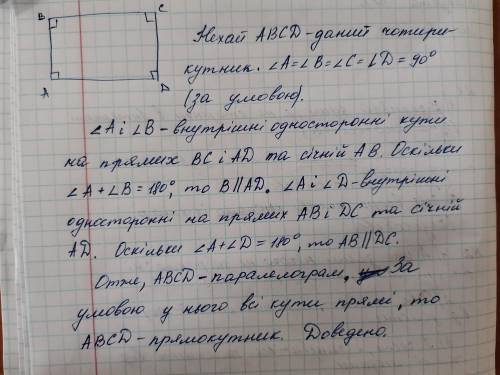 B
C
A
D
Нехай ABCD-даний чотири-
кутник. ∠A=∠B=∠C=∠D=90°
(за умовою).
∠A і ∠B-внутрішні односторонні кути
на прямих BC і AD та січній AB. Оскільки
∠A+∠B=180°, то B∥AD. ∠A і ∠D-внутрішні
односторонні на прямих AB і DC та січній
AD. Оскільки ∠A+∠D=180°, то AB∥DC.
Отже, ABCD-паралелограм. За
умовою у нього всі кути прямі, то
ABCD-прямокутник. Доведено.